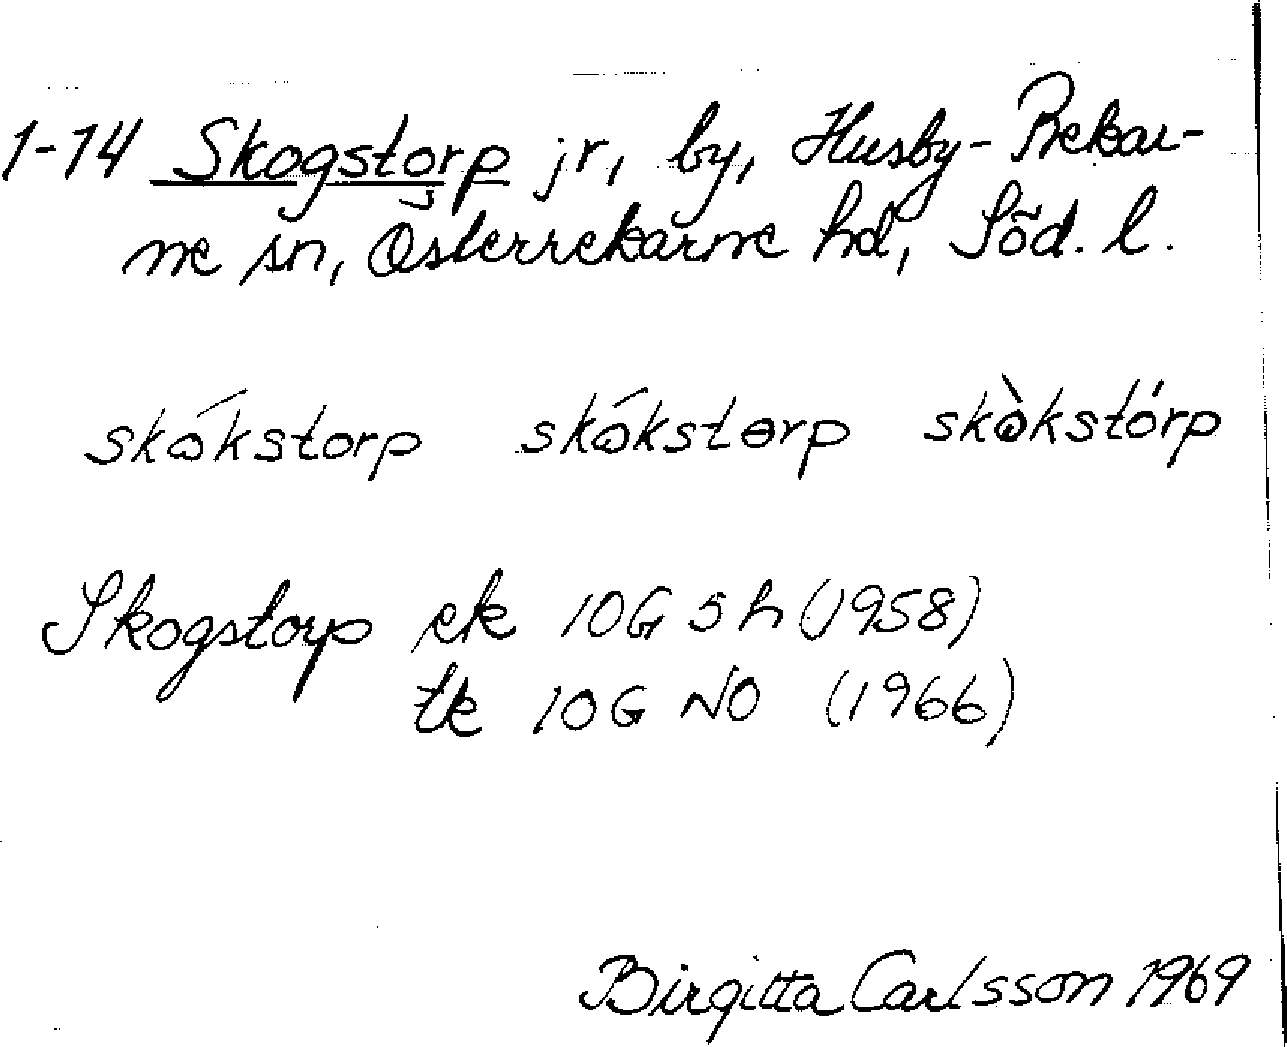 1-14 Skogstorp jr, by, Husby-Rekar-
ne sn, Österrekarne hd, Söd. l.
skókstorp skókstərp skòkstórp
Skogstorp ek 10G 5h (1958)
tk 10G NO (1966)
Birgitta Carlsson 1969